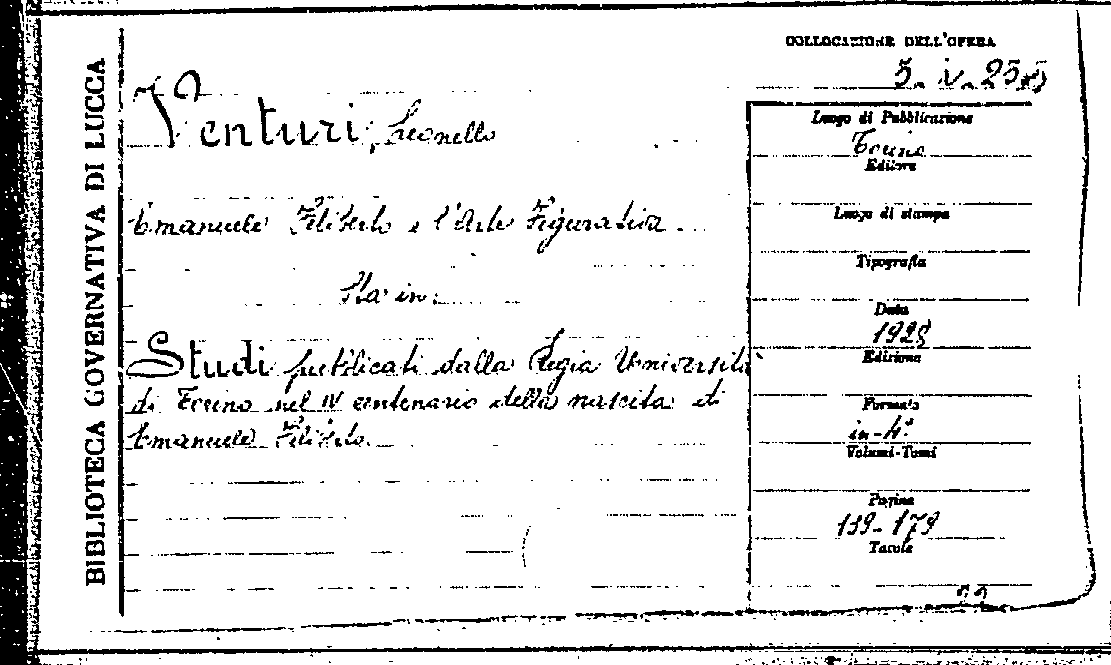 BIBLIOTECA GOVERNATIVA DI LUCCA
COLLOCAZIONE DELL'OPERA
Venturi, Lionello
Emanuele Filiberto e l'Arte Figurativa.
Sta in:
Studi pubblicati dalla Regia Università
di Torino nel IV centenario della nascita di
Emanuele Filiberto.
Luogo di Pubblicazione
Torino
Editore
Luogo di stampa
Tipografia
Data
1928
Edizione
Formato
in-4°
Volumi-Tomi
Pagine
139-179
Tavole